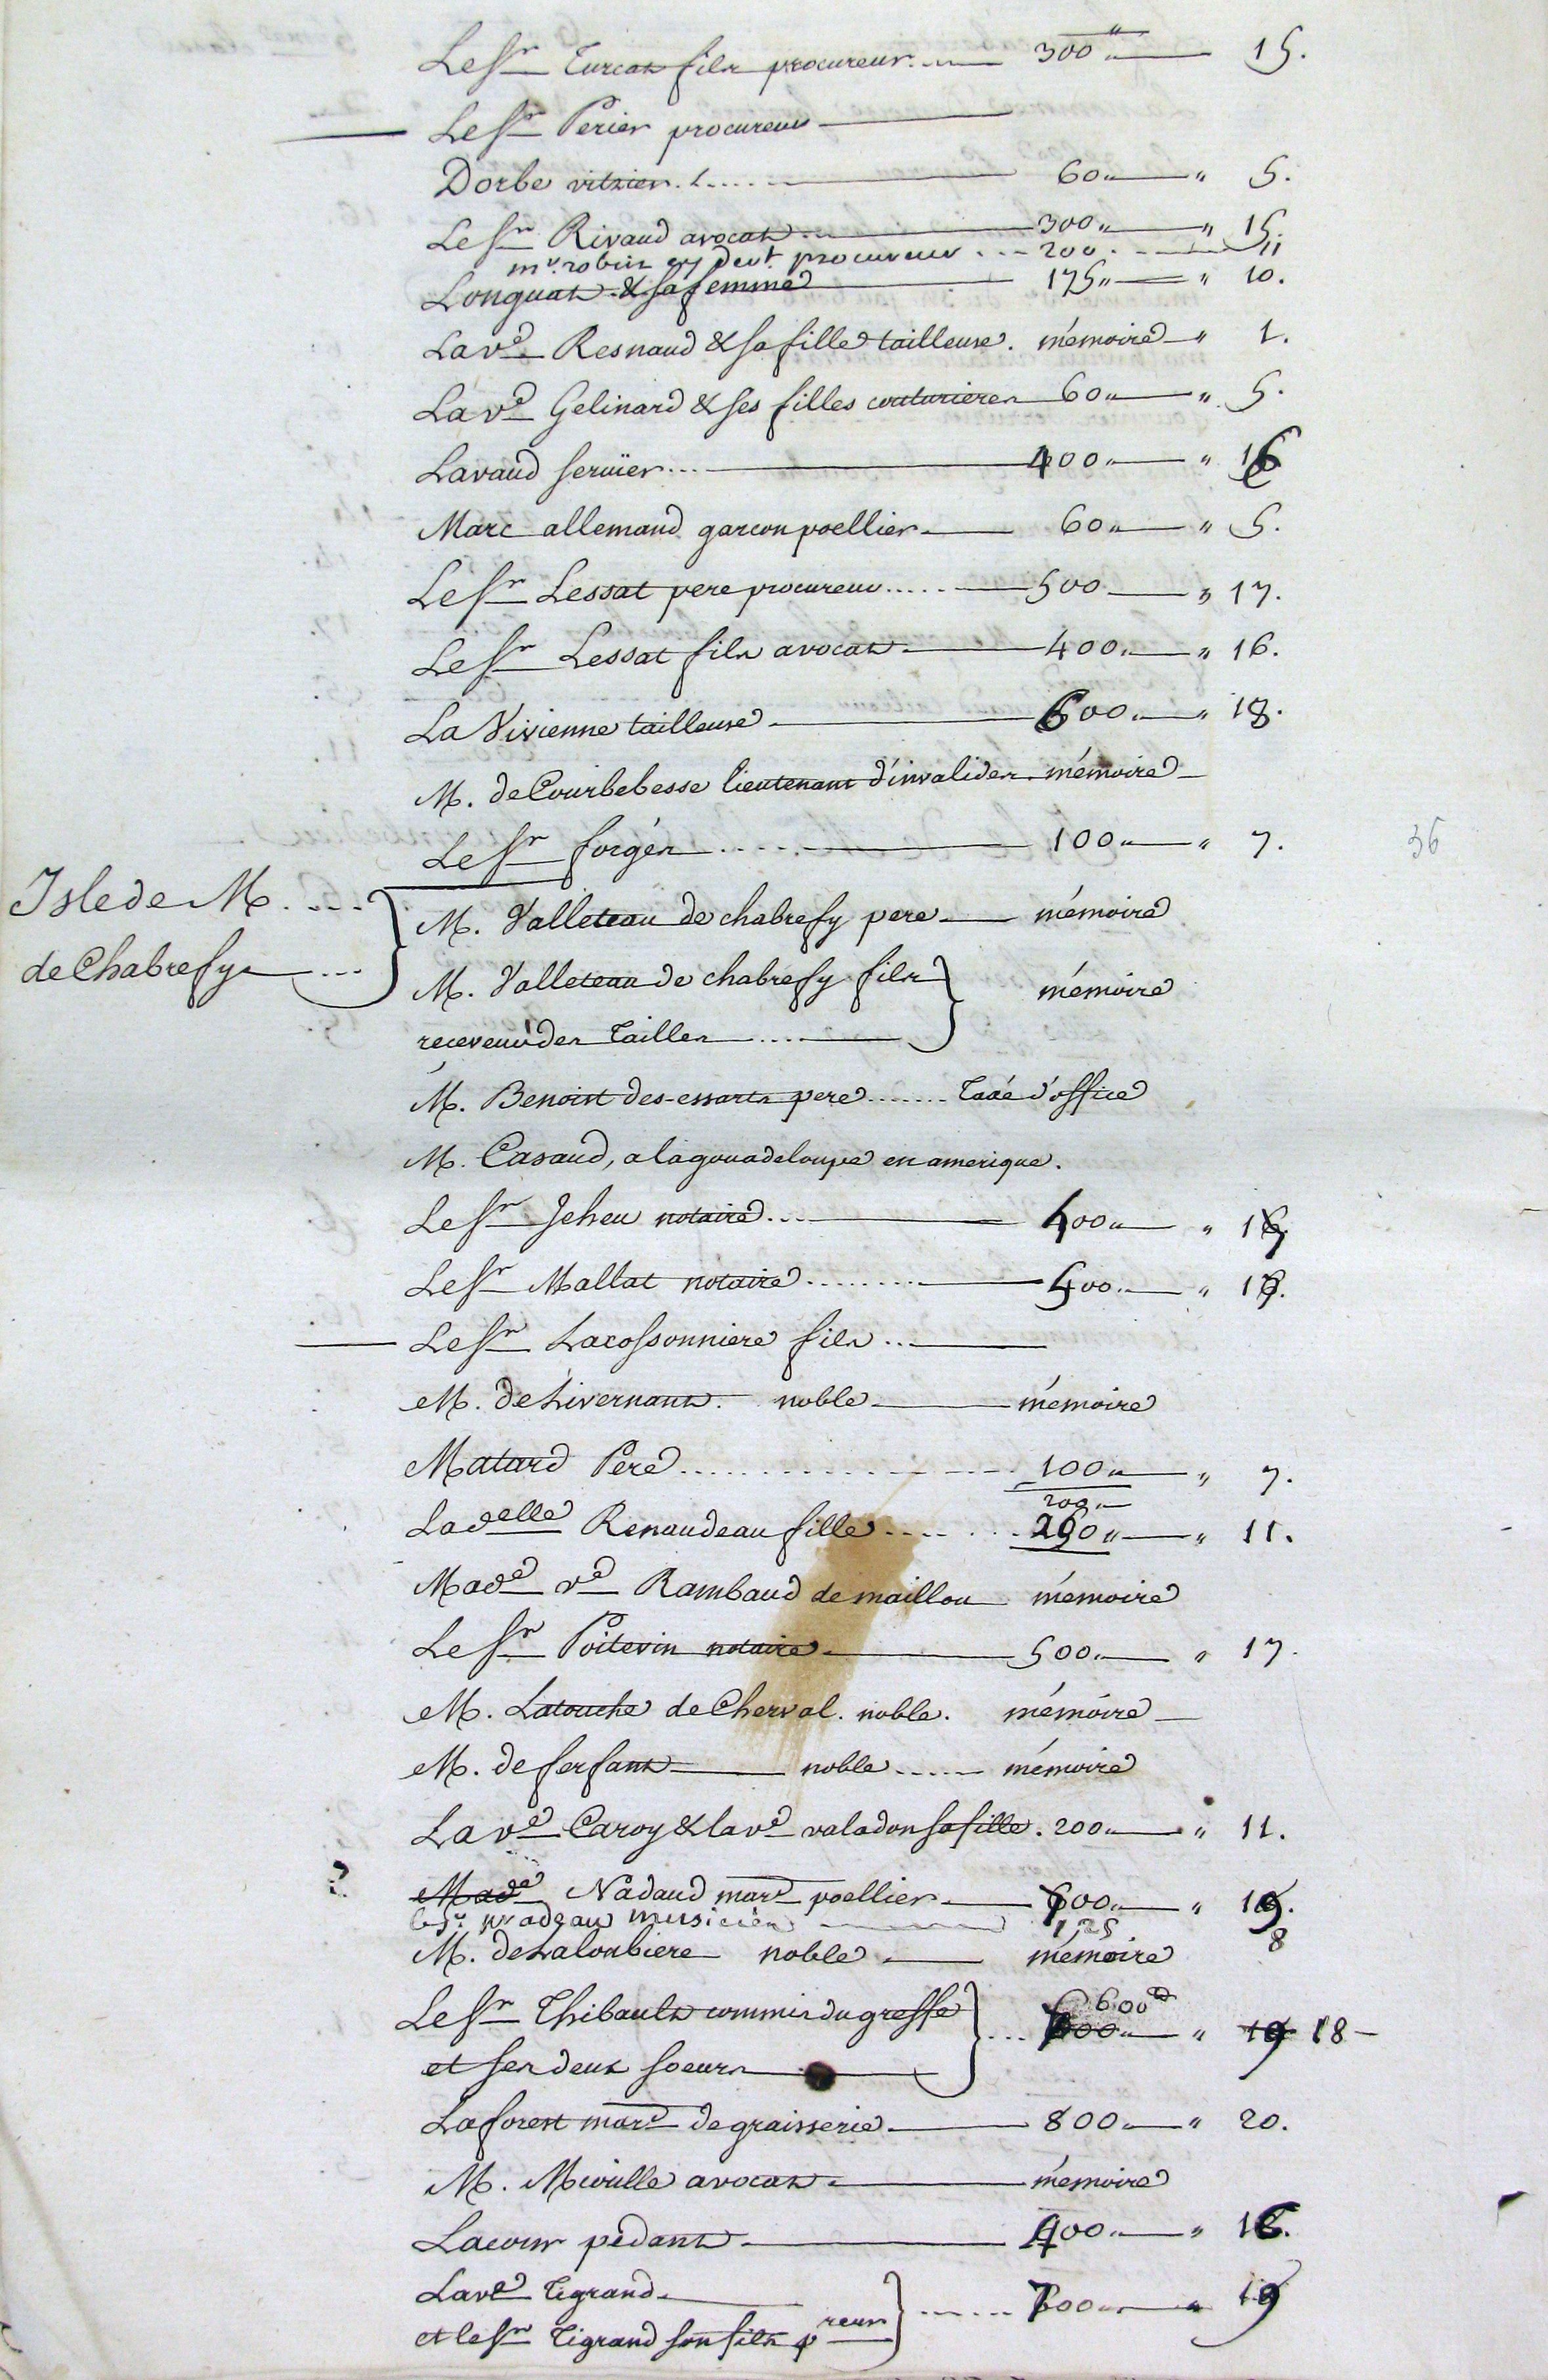 Le Sr Turcat fils procureur ..... 300" 15.
Le Sr Perier procureur
Dorbe vitrier ..... 60" " 5.
Le Sr Rivaud avocat ... 300" " 15.
mr. robin cy devt procureur ... 200 . 11
Longuat & sa femme 175" " 10.
La ve Resnaud & sa fille tailleuse. mémoire " 1.
La ve Gelinard & ses filles couturieres 60" " 5.
Lavaud seruïer ... 400" " 16
Marc allemand garcon poellier 60" " 5.
Le Sr Lessat pere procureur ..... 500 " 17.
Le Sr Lessat fils avocat 400" " 16.
La Vivienne tailleuse 600" " 18.
M. de Courbebesse lieutenant d'invalides mémoire
Le Sr forgés ..... 100" " 7.
36
Isle de M. ....
de Chabrefy ...
M. Valleteau de chabrefy pere mémoire
M. Valleteau de chabrefy fils mémoire
receveur des Tailles ....
M. Benoist des-essarts pere ....... Taxé d'office
M. Casaud, a la gouadeloupe en amerique.
Le Sr Jeheu notaire ... 500" " 17
Le Sr Mallat notaire ........ 500" " 17.
Le Sr Lacossonniere fils ...
M. de Livernant. noble mémoire
Matard Pere ..... 100" " 7.
200"
La delle Renaudeau fille ..... " 11.
Made ve Rambaud de maillou mémoire
Le Sr Poitevin notaire 500" " 17.
M. Latouche de Cherval. noble. mémoire
M. de ferfant noble ..... mémoire
La ve Caroy & la ve valadon sa fille. 200" " 11.
? Made Nadaud mard poellier 700" " 19.
le sr. nadeau musicien 125 8
M. de Laloubiere noble mémoire
Le Sr Thibault commis du greffe 600 ... 700" " 19 18
et ses deux soeurs
Laforest mard de graisserie 800" " 20.
M. Mioulle avocat mémoire
Lacour pedant 400" " 16.
La ve Tigrand
et le Sr Tigrand son fils preur ...... 700" " 19